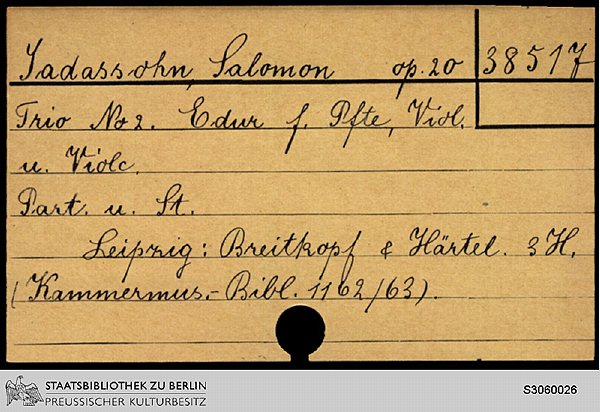 Jadassohn, Salomon op. 20 38517
Trio No 2. Edur f. Pfte, Viol.
u. Violc.
Part. u. St.
Leipzig: Breitkopf & Härtel. 3 H.
(Kammermus.-Bibl. 1162/63).
STAATSBIBLIOTHEK ZU BERLIN
PREUSSISCHER KULTURBESITZ
S3060026